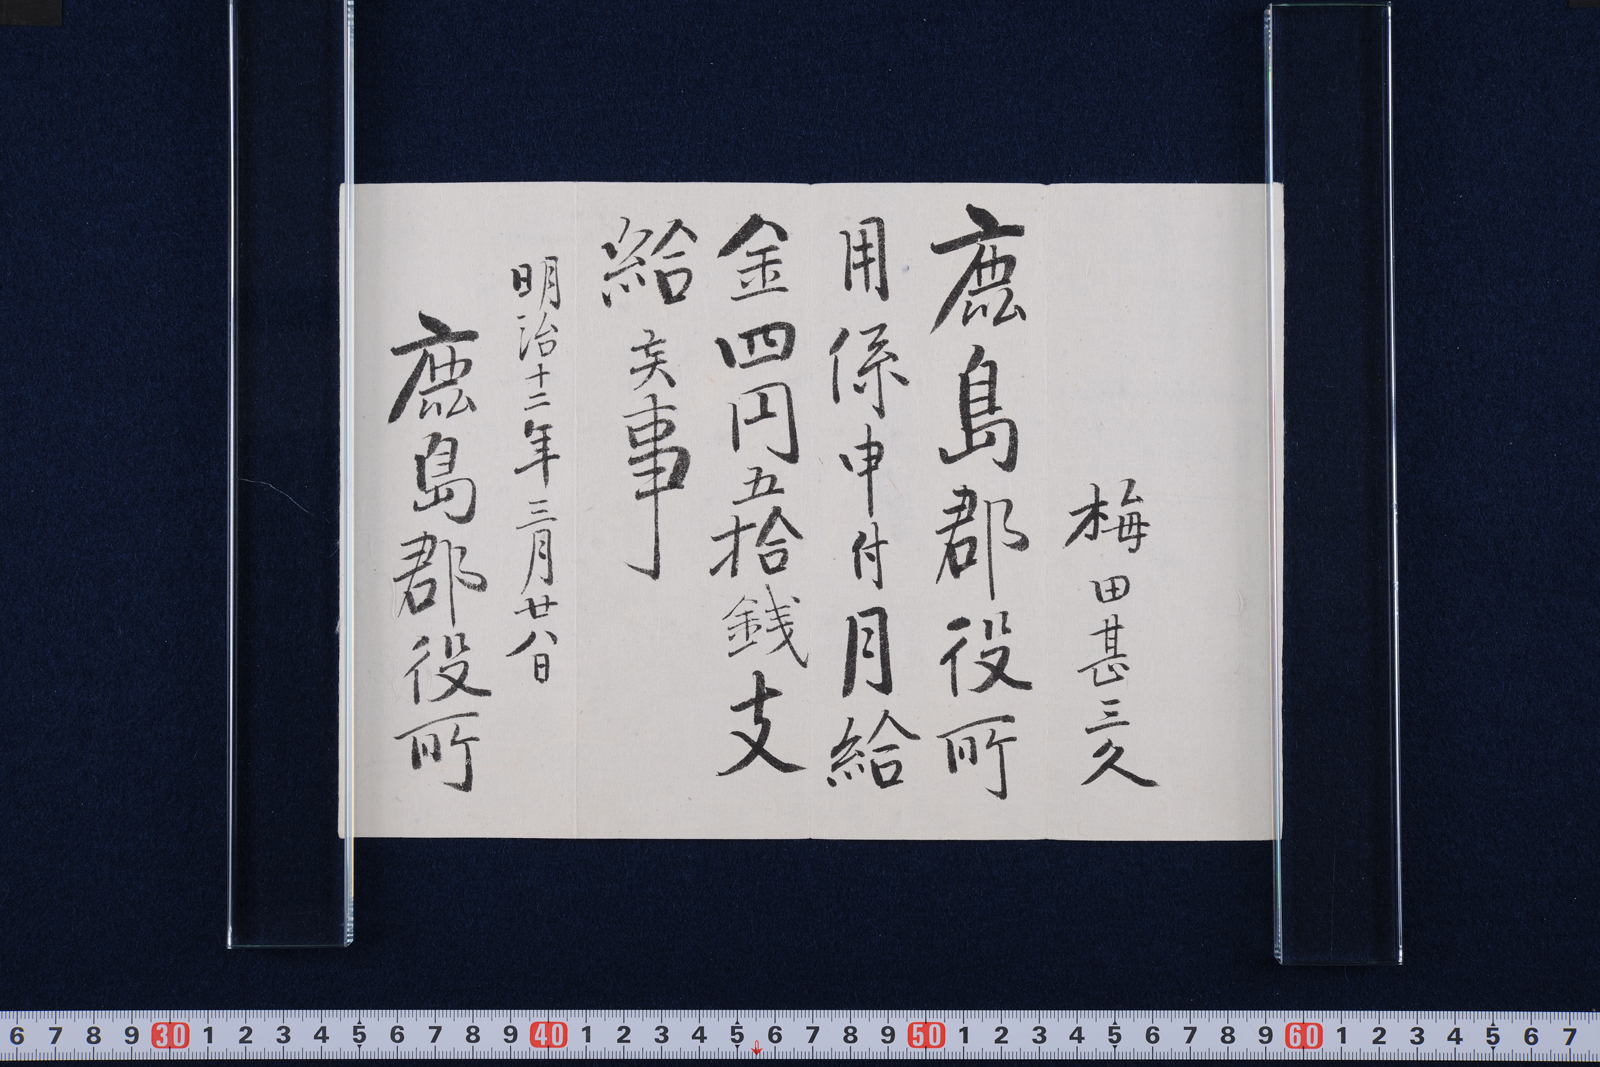 梅田甚三久
鹿島郡役所
用係申付月給
金四円五拾銭支
給矦事
明治十二年三月廿八日
鹿島郡役所
6 7 8 9 30 1 2 3 4 5 6 7 8 9 40 1 2 3 4 5 6 7 8 9 50 1 2 3 4 5 6 7 8 9 60 1 2 3 4 5 6 7